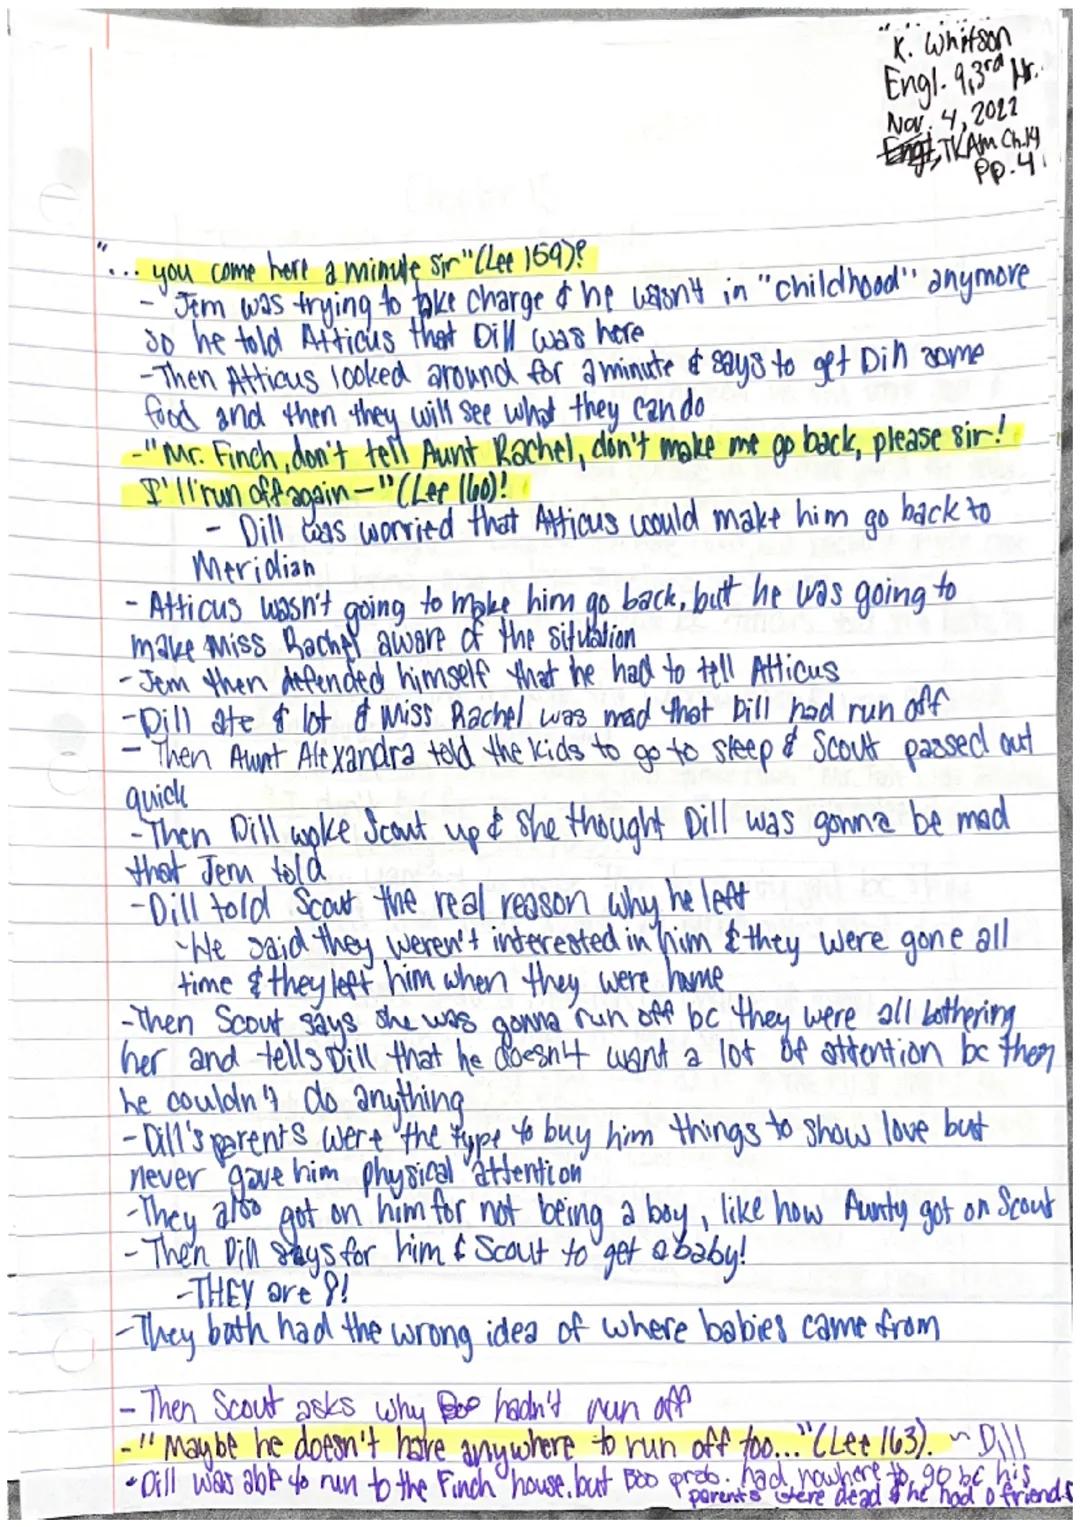 K. Whitson
Engl. 9, 3rd Hr.
Nov. 4, 2022
TKAM Ch.14
Pp. 4
"... you come here a minute sir" (Lee 159)?
- Jem was trying to take charge & he wasn't in "childhood" anymore
so he told Atticus that Dill was here
- Then Atticus looked around for a minute & says to get Dill some
food and then they will see what they can do
- "Mr. Finch, don't tell Aunt Rachel, don't make me go back, please sir!
I'll run off again—" (Lee 160)!
- Dill was worried that Atticus would make him go back to
Meridian
- Atticus wasn't going to make him go back, but he was going to
make Miss Rachel aware of the situation
- Jem then defended himself that he had to tell Atticus
- Dill ate a lot & Miss Rachel was mad that Dill had run off
- Then Aunt Alexandra told the kids to go to sleep & Scout passed out
quick
- Then Dill woke Scout up & she thought Dill was gonna be mad
that Jem told
- Dill told Scout the real reason why he left
- He said they weren't interested in him & they were gone all
time & they left him when they were home
- Then Scout says she was gonna run off bc they were all bothering
her and tells Dill that he doesn't want a lot of attention bc then
he couldn't do anything
- Dill's parents were the type to buy him things to show love but
never gave him physical attention
- They also got on him for not being a boy, like how Aunty got on Scout
- Then Dill says for him & Scout to get a baby!
- THEY are 8!
- They both had the wrong idea of where babies came from
- Then Scout asks why Boo hadn't run off
- "Maybe he doesn't have anywhere to run off too..." (Lee 163). ~ Dill
• Dill was able to run to the Finch house, but Boo prob. had nowhere to go bc his
parents were dead & he had 0 friends